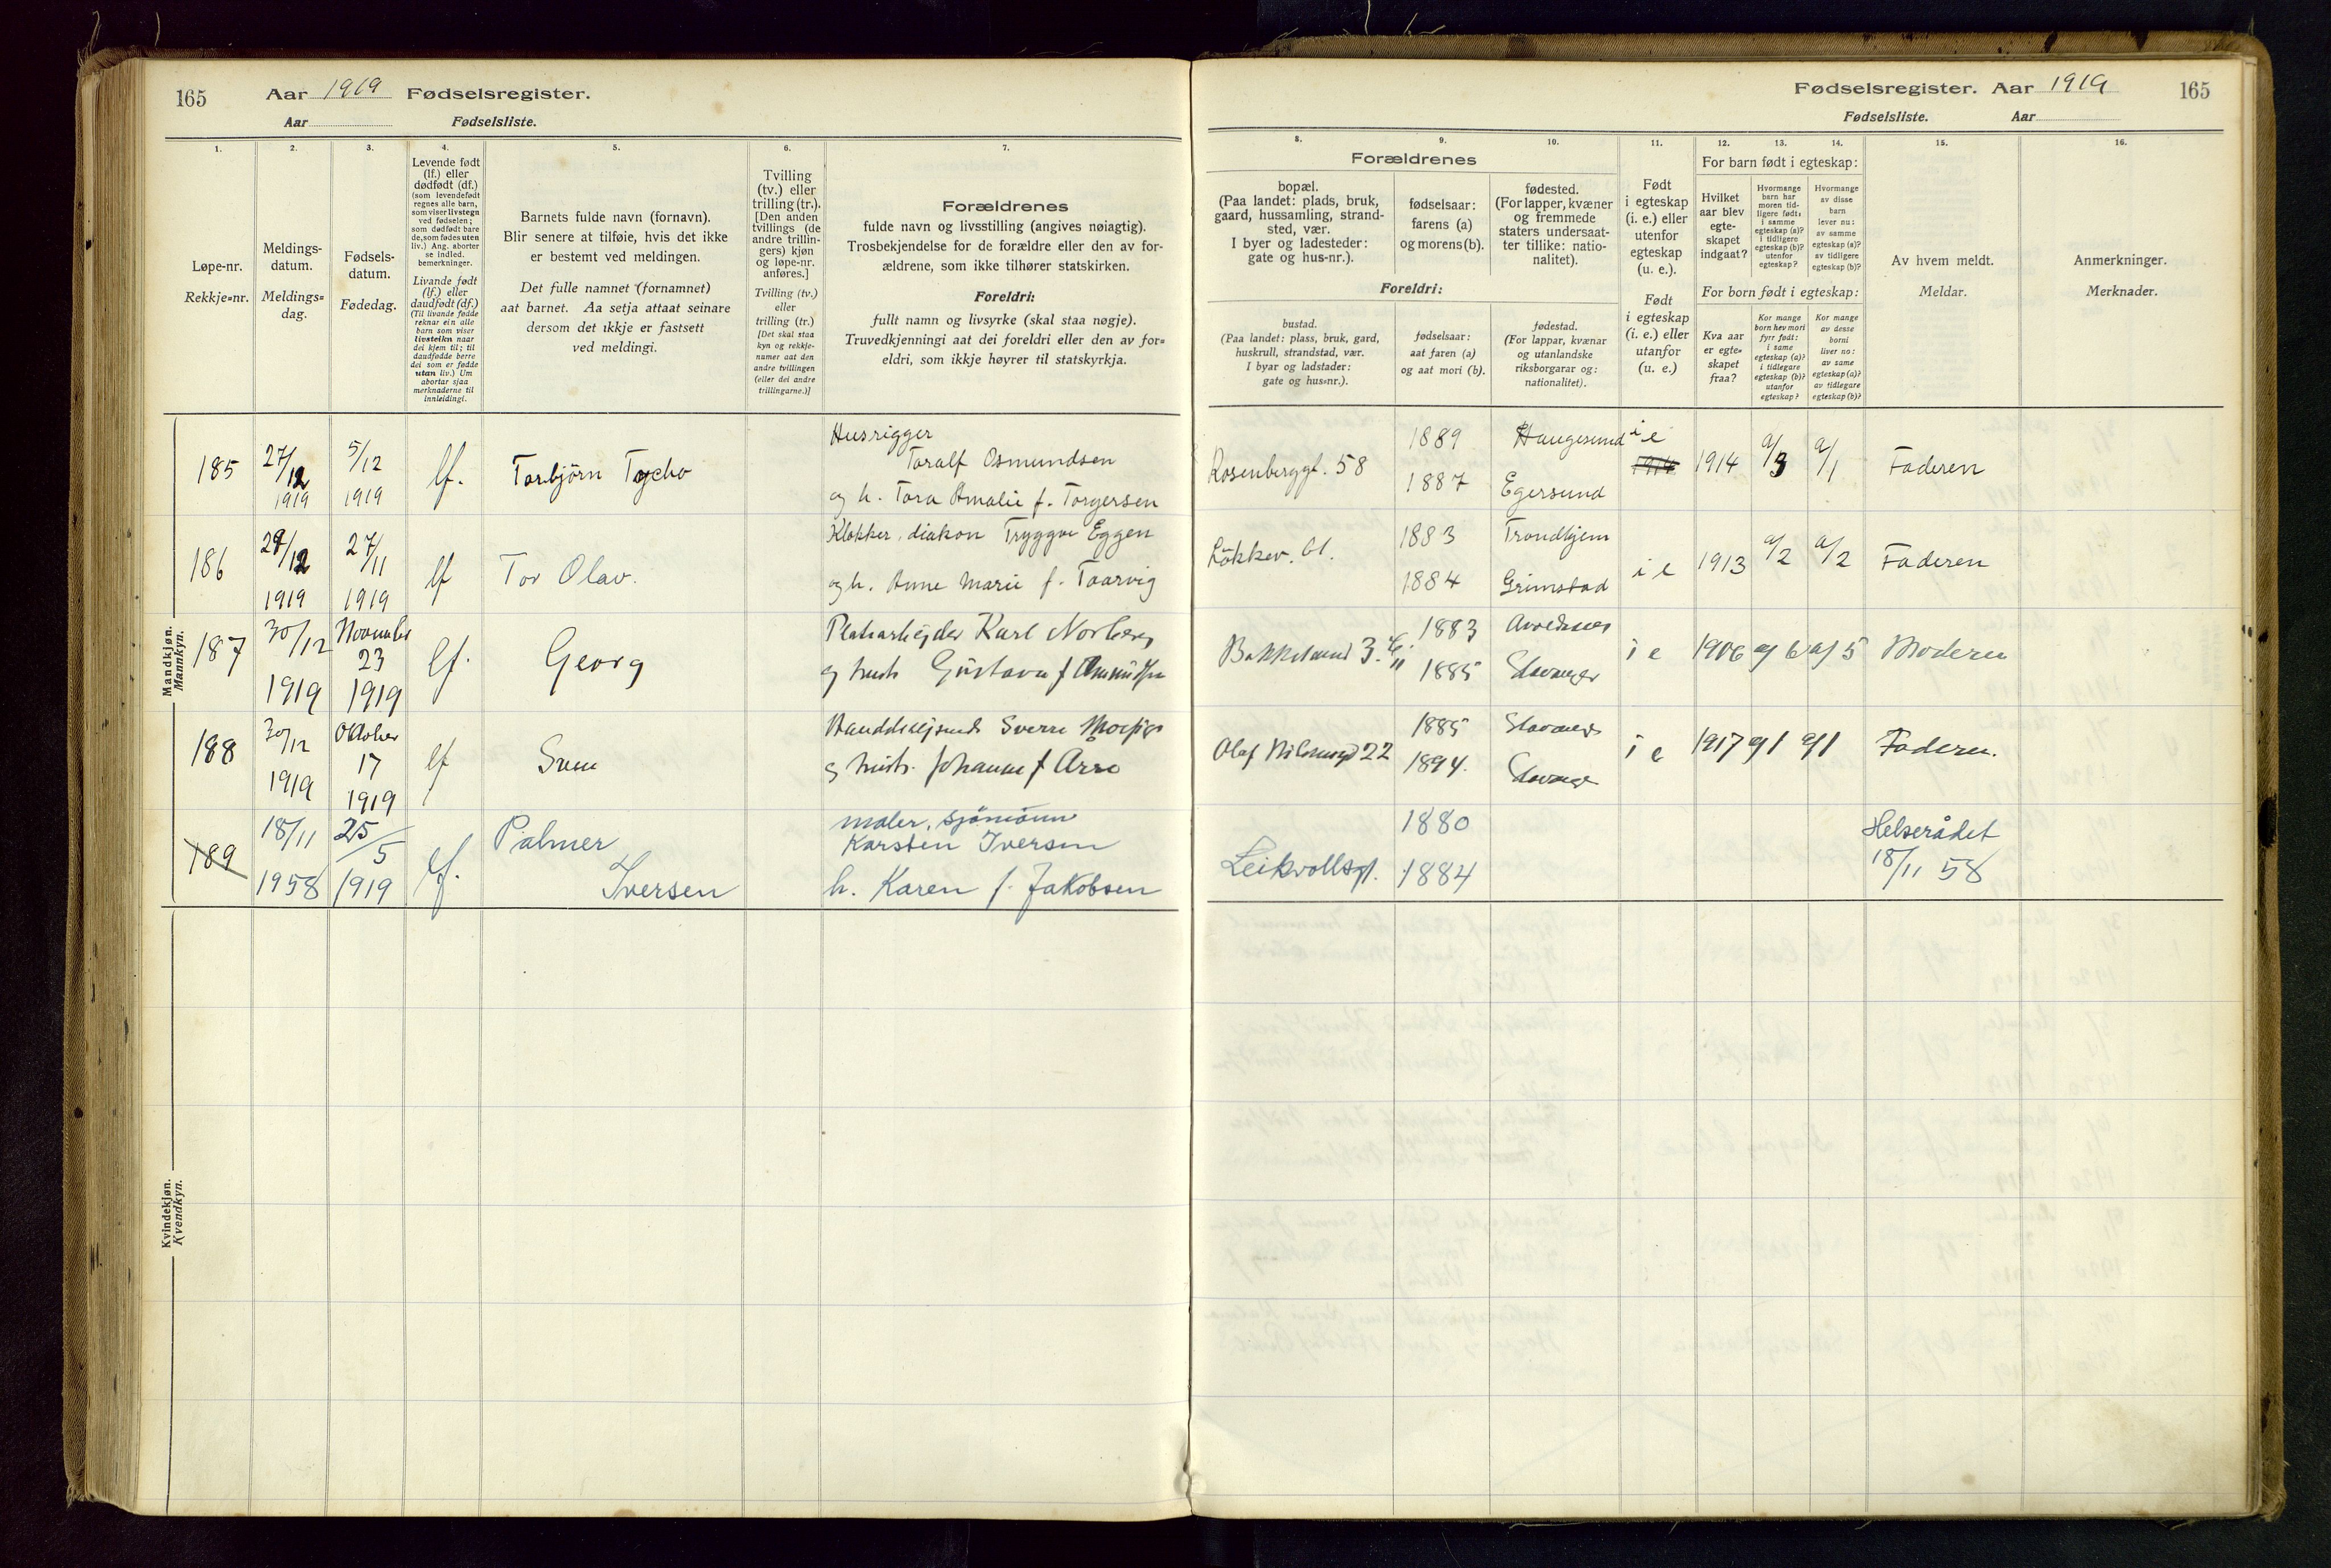 165 Aar 1919 Fødselsregister.
Aar Fødselsliste.
1.
Løpe-nr.
Rekkje-nr.
2.
Meldings-
datum.
Meldings-
dag.
3.
Fødsels-
datum.
Fødedag.
4.
Levende født
(lf.) eller
dødfødt (df.)
(som levendefødt
regnes alle barn,
som viser livstegn
ved fødselen;
som dødfødt bare
de, som fødes uten
liv.) Ang. aborter
se indled.
bemerkninger.
Livande født
(lf.) eller
daudfødt (df.)
(Til livande fødde
reknar ein alle
barn som viser
livsteikn naar
dei kjem til; til
daudfødde berre
dei som er fødde
utan liv.) Um
abortar sjaa
merknaderne til
innleidingi.
5.
Barnets fulde navn (fornavn).
Blir senere at tilføie, hvis det ikke
er bestemt ved meldingen.
Det fulle namnet (fornamnet)
aat barnet. Aa setja attaat seinare
dersom det ikkje er fastsett
ved meldingi.
6.
Tvilling
(tv.) eller
trilling (tr.).
[Den anden
tvillings (de
andre trillin-
gers) kjøn
og løpe-nr.
anføres.]
Tvilling (tv.)
eller
trilling (tr.)
[Det skal staa
kyn og rekkje-
numer aat den
andre tvillingen
(eller dei andre
trillingarne.)]
7.
Forældrenes
fulde navn og livsstilling (angives nøiagtig).
Trosbekjendelse for de forældre eller den av for-
ældrene, som ikke tilhører statskirken.
Foreldri:
fullt namn og livsyrke (skal staa nøgje).
Truvedkjenningi aat dei foreldri eller den av for-
eldri, som ikkje høyrer til statskyrkja.
Mandkjøn.
Mannkyn.
185 27/12 1919 5/12 1919 lf. Torbjörn Tycho
Husrigger
Toralf Osmundsen
og h. Tora Amalie f. Torgersen
186 29/12 1919 27/11 1919 lf Tor Olav.
Klokker, diakon Tryggve Eggen
og h. Anne Marie f. Taarvig
187 30/12 1919 November 23 1919 lf. Georg
Platearbejder Karl Norberg
og hust. Gustava f
188 30/12 1919 Oktober 17 1919 lf Sven
Sverre
og hustr. Johanne f Arre
189 18/11 1958 25/5 1919 lf. Palmer
Iversen
maler, sjömann
Karsten Iversen
h. Karen f. Jakobsen
Kvindekjøn.
Kvendkyn.
Fødselsregister. Aar 1919 165
Fødselsliste. Aar
8.
Forældrenes
bopæl.
(Paa landet: plads, bruk,
gaard, hussamling, strand-
sted, vær.
I byer og ladesteder:
gate og hus-nr.).
Foreldri:
bustad.
(Paa landet: plass, bruk, gard,
huskrull, strandstad, vær.
I byar og ladstader:
gate og hus-nr.).
9.
fødselsaar:
farens (a)
og morens (b).
fødselsaar:
aat faren (a)
og aat mori (b).
10.
fødested.
(For lapper, kvæner
og fremmede
staters undersaat-
ter tillike: natio-
nalitet).
fødestad.
(For lappar, kvænar
og utanlandske
riksborgarar og:
nationalitet).
11.
Født
i egteskap
(i. e.) eller
utenfor
egteskap
(u. e.).
Født
i egteskap
(i. e.) eller
utanfor
(u. e.)
12.
For barn født i egteskap:
Hvilket
aar blev
egte-
skapet
indgaat?
For born født i egteskap:
Kva aar
er egte-
skapet
fraa?
13.
Hvormange
barn har
moren tid-
ligere født:
i samme
egteskap (a)?
i tidligere
egteskap (b)?
utenfor
egteskap?
Kor mange
born hev mori
fyrr født:
i same
egteskap (a)?
i tidlegare
egteskap (b)?
utanfor
egteskap?
14.
Hvormange
av disse
barn
lever nu:
av samme
egteskap (a)?
av tidligere
egteskap (b)?
Kor mange
av desse
borni
liver no:
av same
egteskap (a)?
av tidlegare
egteskap (b)?
15.
Av hvem meldt.
Meldar.
16.
Anmerkninger.
Merknader.
Rosenberggt. 58 1889 Haugesund i e 1914 1914 a/3 a/1 Faderen
1887 Egersund
Lökkev. 61. 1883 Trondhjem i e 1913 a/2 a/2 Faderen
1884 Grimstad
1883 i e 1906 a/6 a/5 Moderen
1885 Stavanger
Olaf 22 1885 Stavanger i e 1917 a/1 a/1 Faderen.
1894. Stavanger
Leikvollsgt. 1880 Helserådet
1884 18/11 58